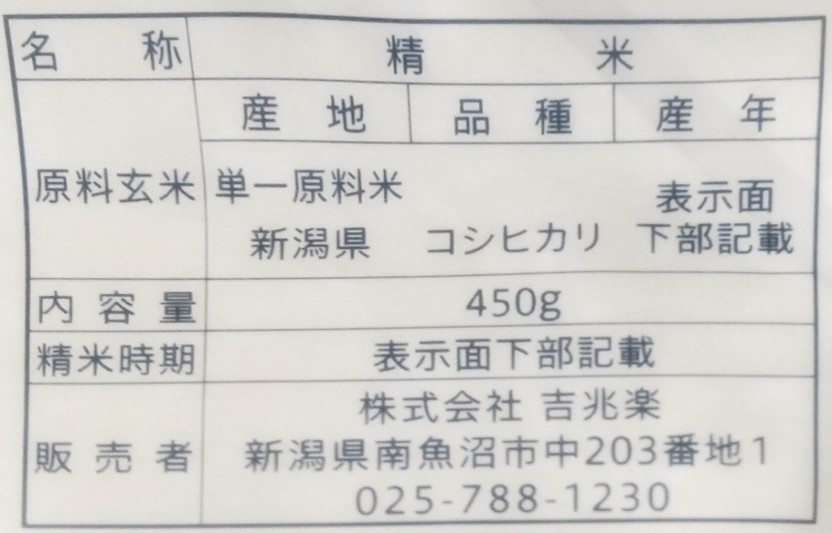 名称 精米
産地 品種 産年
原料玄米 単一原料米
表示面
新潟県 コシヒカリ 下部記載
内容量 450g
精米時期 表示面下部記載
株式会社 吉兆楽
販売者 新潟県南魚沼市中203番地1
025-788-1230